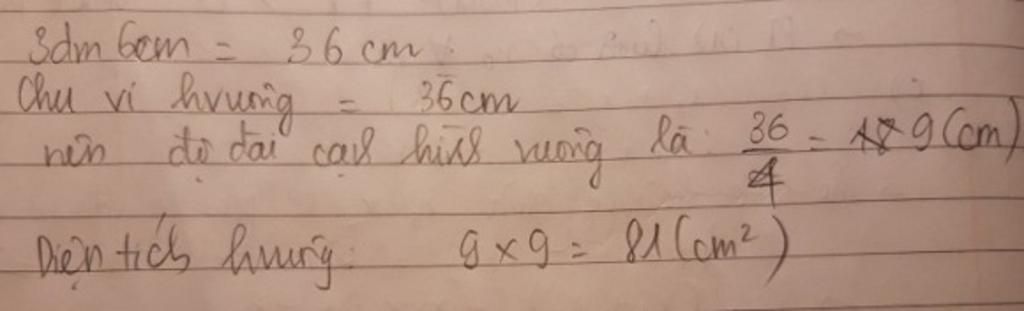 3dm 6cm = 36 cm
Chu vi hvuông = 36cm
nên độ dài cạh hìh vuông là: 36/4 = 9 (cm)
Diện tích hvuông: 9 x 9 = 81 (cm²)